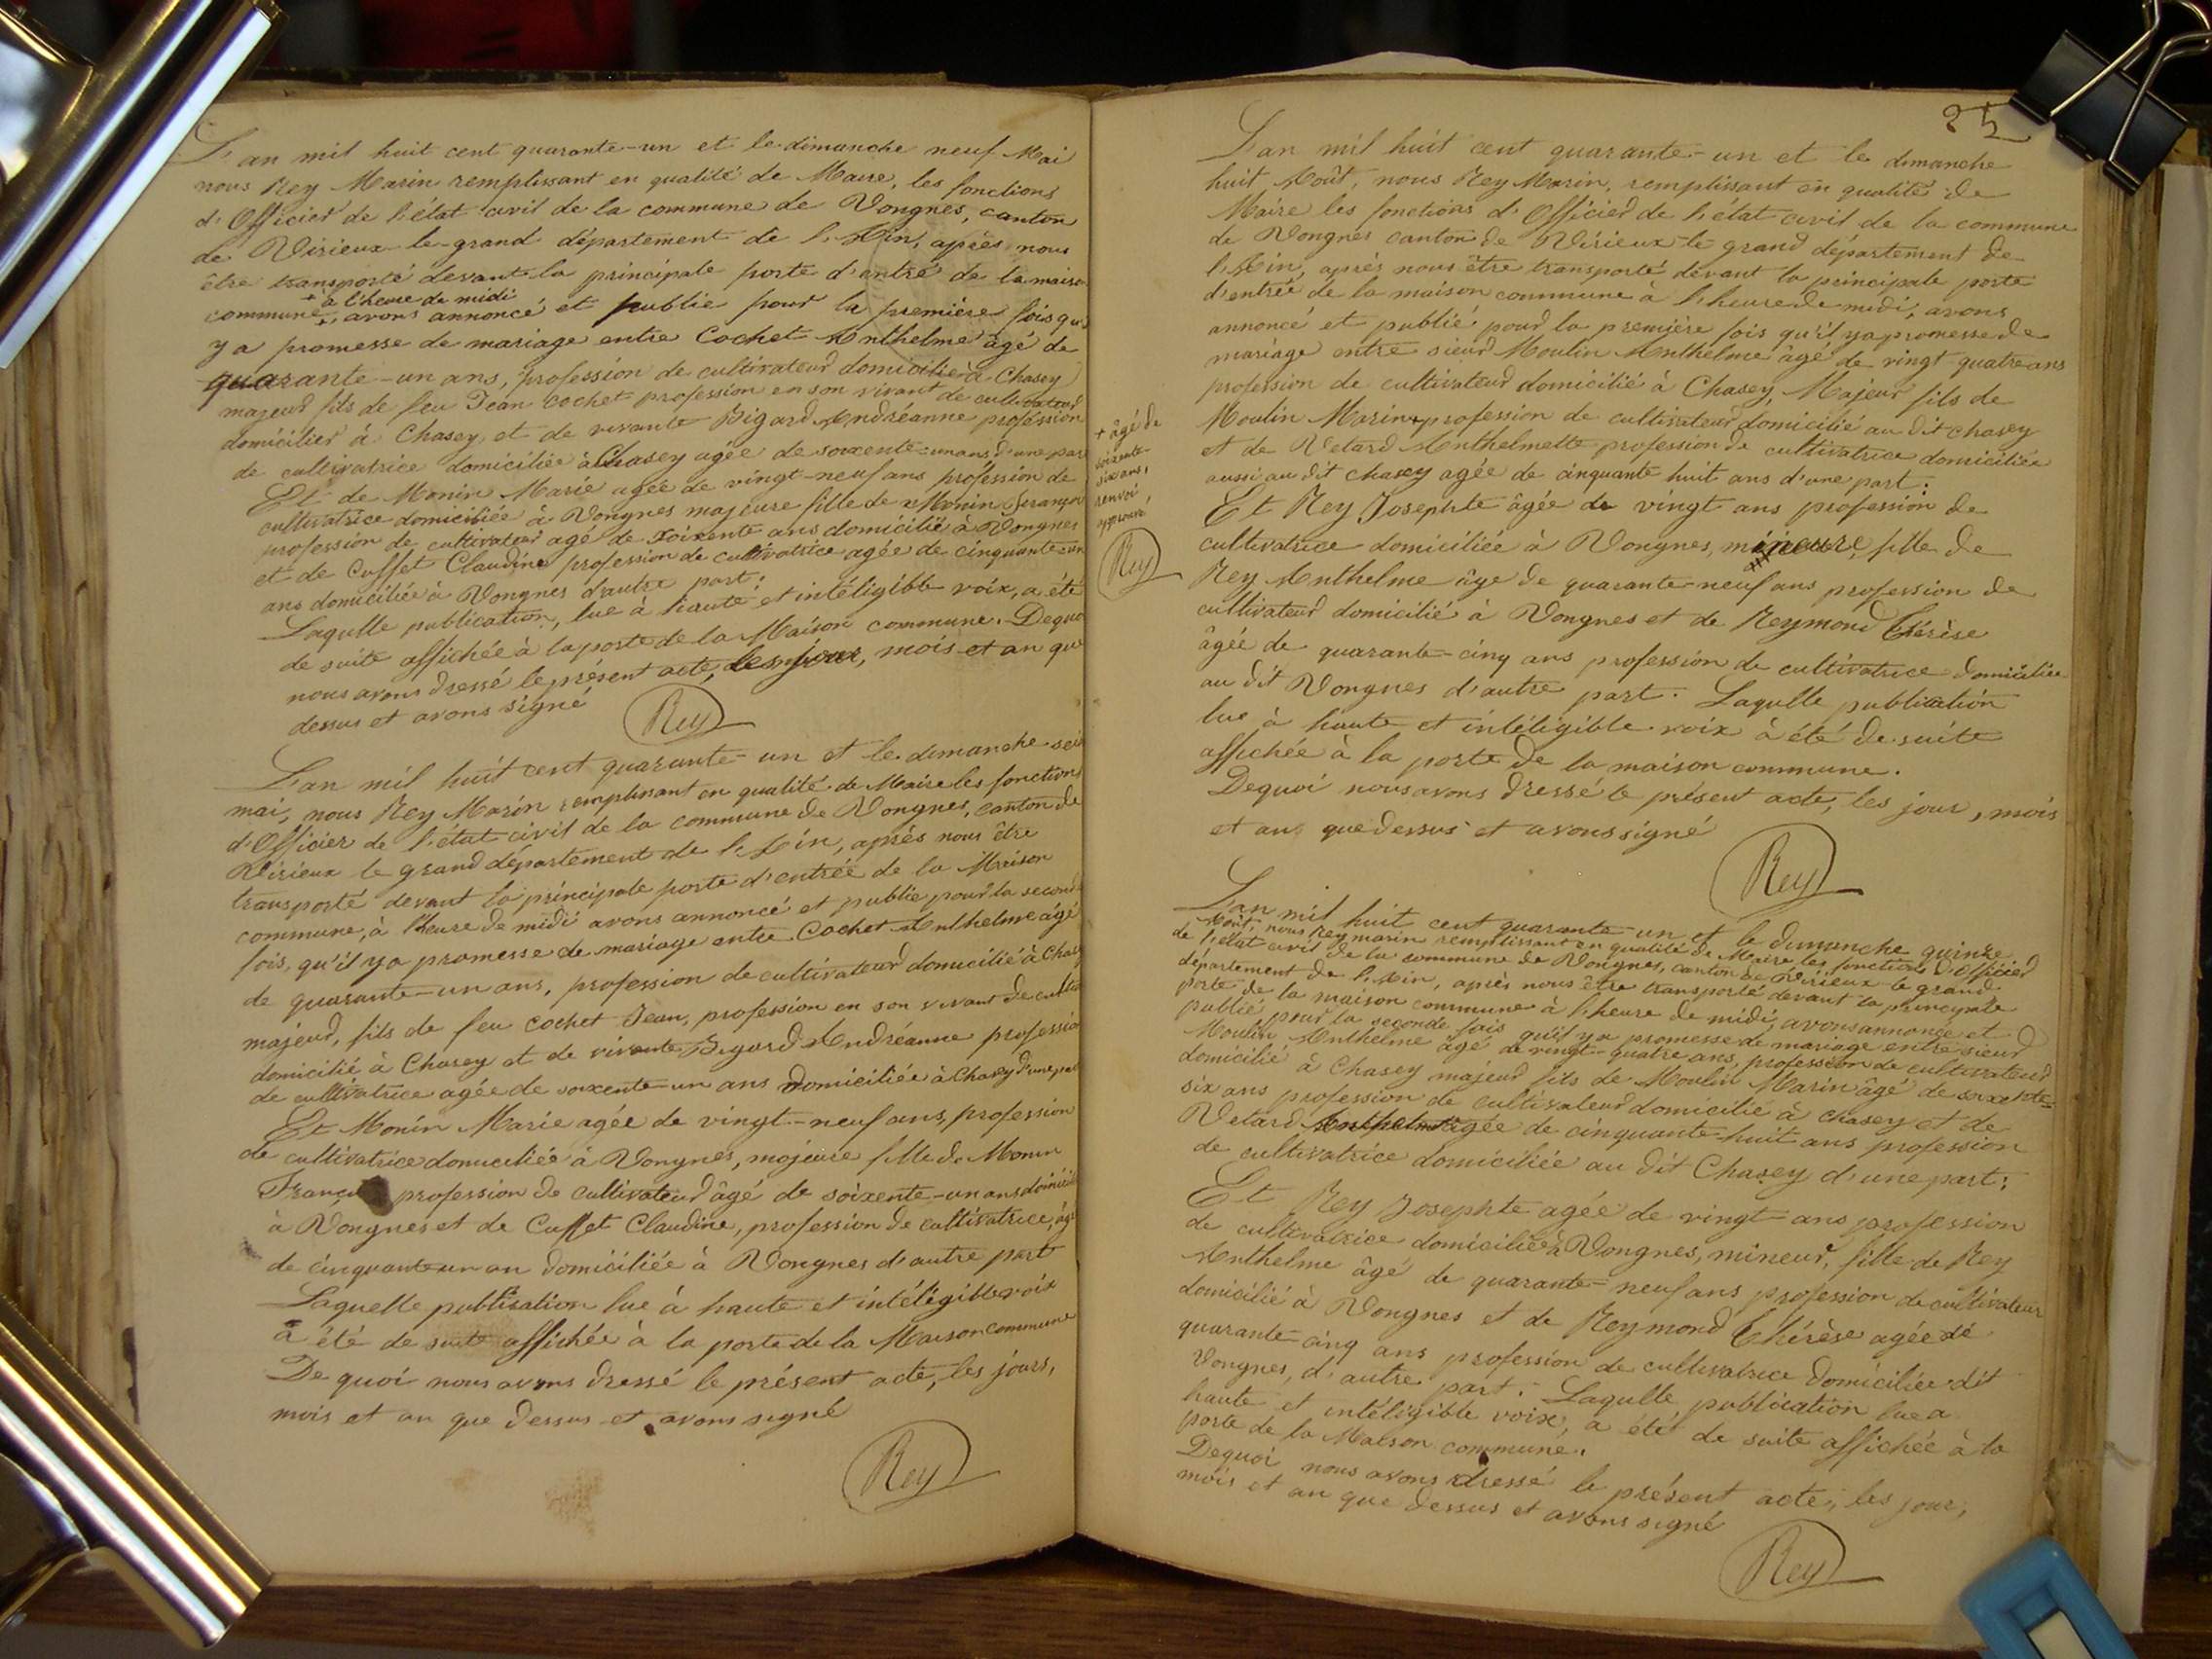 L'an mil huit cent quarante-un et le dimanche neuf Mai
nous Rey Marin remplissant en qualité de Maire, les fonctions
d'Officier de l'état civil de la commune de Vongnes, canton
de Virieux-le-grand département de l'Ain, après nous
être transporté devant la principale porte d'entré de la maison
+ à l'heure de midi
commune +, avons annoncé et publie pour la première fois qu'
y a promesse de mariage entre Cochet Anthelme âgé de
quarante-un ans, profession de cultivateur domicilié à Chasey
majeur fils de feu Jean Cochet profession en son vivant de cultivateur
domicilier à Chasey et de vivante Bigard Andréanne profession
de cultivatrice domiciliée à Chasey agée de soixente-un ans d'une part
Et de Monin Marie agée de vingt-neuf ans profession de
cultivatrice domiciliée à Vongnes majeure fille de Monin François
profession de cultivateur agé de soixente ans domicilié à Vongnes
et de Cuffet Claudine profession de cultivatrice agée de cinquante-un
ans domiciliée à Vongnes d'autre part:
Laqulle publication, lue à haute et intéligible voix, a été
de suite affichée à la porte de la Maison commune. Dequoi
nous avons dressé le présent acte, les jour, mois et an que
dessus et avons signé
Rey
L'an mil huit cent quarante-un et le dimanche seize
mai, nous Rey Marin remplissant en qualité de Maire les fonctions
d'Officier de l'état civil de la commune de Vongnes, canton de
Virieux le grand département de l'Ain, après nous être
transporté devant la principale porte d'entrée de la Maison
commune, à l'heure de midi avons annoncé et publie pour la seconde
fois, qu'il y a promesse de mariage entre Cochet Anthelme âgé
de quarante-un ans, profession de cultivateur domicilié à Chasey
majeur, fils de feu Cochet Jean, profession en son vivant de cultiv
domicilié à Chasey et de vivante Bigard Andréanne profession
de cultivatrice agée de soixente-un ans domiciliée à Chasey d'une part
Et Monin Marie agée de vingt-neuf ans, profession
de cultivatrice domiciliée à Vongnes, majeure fille de Monin
François profession de cultivateur âgé de soixente-un ans domicilié
à Vongnes et de Cuffet Claudine, profession de cultivatrice, âgé
de cinquante un an domiciliée à Vongnes d'autre part
Laquelle publication lue à haute et intéligible voix
a été de suite affichée à la porte de la Maison commune
De quoi nous avons dressé le présent acte, les jours,
mois et an que dessus et avons signé
Rey
25
L'an mil huit cent quarante-un et le dimanche
huit Août, nous Rey Marin, remplissant en qualité de
Maire les fonctions d'Officier de l'état civil de la commune
de Vongnes canton de Virieux-le grand département de
l'Ain, après nous être transporté devant la principale porte
d'entrée de la maison commune à l'heure de midi, avons
annoncé et publié pour la première fois qu'il y a promesse de
mariage entre sieur Moulin Anthelme âgé de vingt quatre ans
profession de cultivateur domicilié à Chasey, Majeur fils de
Moulin Marin + profession de cultivateur domicilié au dit chasey
et de Vetard Anthelmette profession de cultivatrice domiciliée
aussi au dit chasey agée de cinquante huit ans d'une part:
+ âgé de
soixente-
six ans,
renvoi
approuvé
Rey
Et Rey Josephte âgée de vingt ans profession de
cultivatrice domiciliée à Vongnes, mineure, fille de
Rey Anthelme âge de quarante-neuf ans profession de
cultivateur domicilié à Vongnes et de Reymond Thérèse
âgée de quarante-cinq ans profession de cultivatrice domiciliée
au dit Vongnes d'autre part. Laqulle publication
lue à haute et intéligible voix à été de suite
affichée à la porte de la maison commune.
Dequoi nous avons dressé le présent acte, les jour, mois
et ans que dessus et avons signé
Rey
L'an mil huit cent quarante-un et le dimanche quinze
Août, nous Rey marin remplissant en qualité de Maire les fonctions d'Officier
de l'état civil de la commune de Vongnes, canton de Virieux-le grand
département de l'Ain, après nous être transporté devant la principale
porte de la maison commune à l'heure de midi, avons annoncé et
publié pour la seconde fois qu'il y a promesse de mariage entre sieur
Moulin Anthelme âgé de vingt-quatre ans, profession de cultivateur
domicilié à Chasey majeur fils de Moulin Marin âgé de soixente-
six ans profession de cultivateur domicilié à chasey et de
Vetard Anthelmette agée de cinquante-huit ans profession
de cultivatrice domiciliée au dit Chasey d'une part;
Et Rey Josephte agée de vingt ans profession
de cultivatrice domiciliée à Vongnes, mineur, fille de Rey
Anthelme âgé de quarante-neuf ans profession de cultivateur
domicilié à Vongnes et de Reymond Thérèse agée de
quarante-cinq ans profession de cultivatrice domiciliée dit
Vongnes, d'autre part. Laqulle publication lue a
haute et intéligible voix, a été de suite affichée à la
porte de la Maison commune.
Dequoi nous avons dressé le présent acte, les jour,
mois et an que dessus et avons signé
Rey